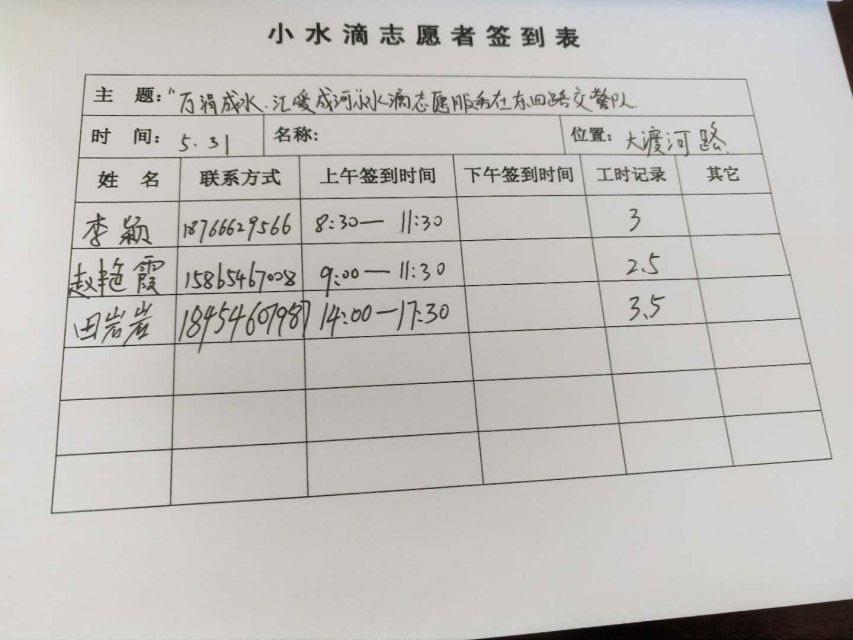 小水滴志愿者签到表
主 题：“万涓成水.汇爱成河小水滴志愿服务在东四路交警队
时 间：5.31 名称： 位置：大渡河路
姓 名 联系方式 上午签到时间 下午签到时间 工时记录 其它
李颖 18766629566 8:30— 11:30 3
赵艳霞 15865467008 9:00—11:30 2.5
田岩岩 18454607987 14:00—17:30 3.5